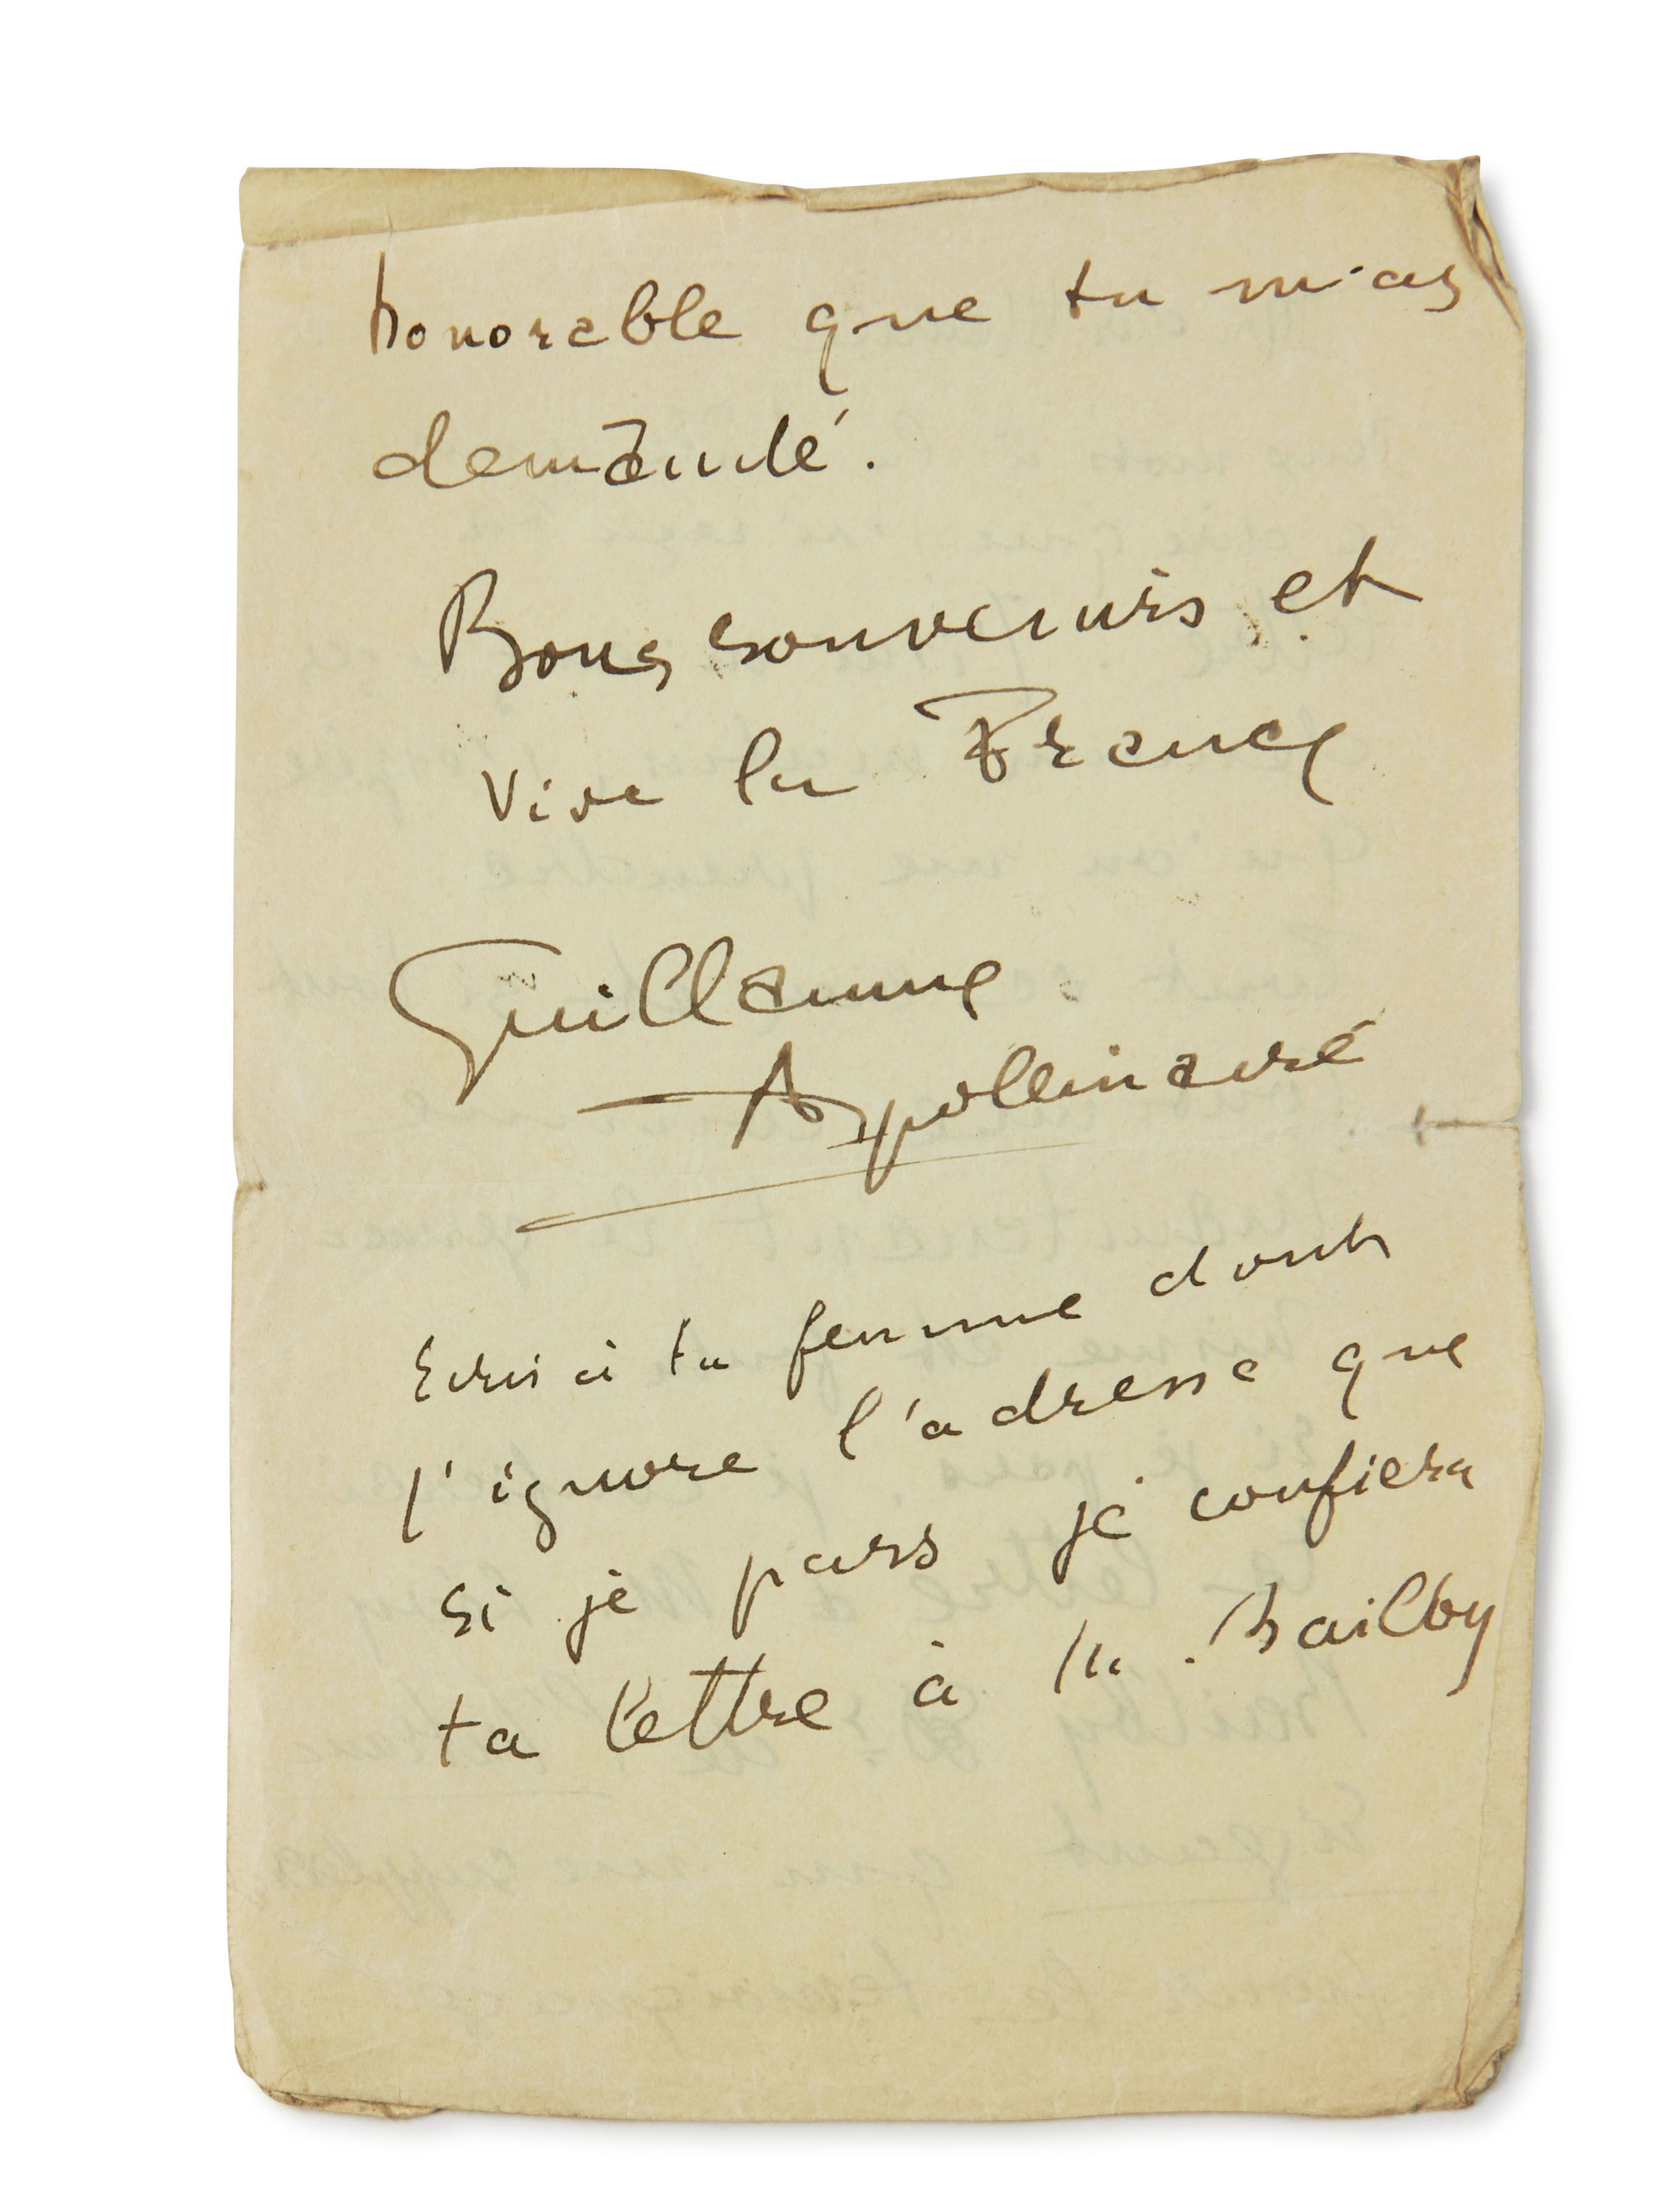 honorable que tu m'as
demandé.
Bons souvenirs et
Vive la France
Guillaume
Apollinaire
Ecris à ta femme dont
j'ignore l'adresse que
si je pars je confiera
ta lettre à M. Bailby